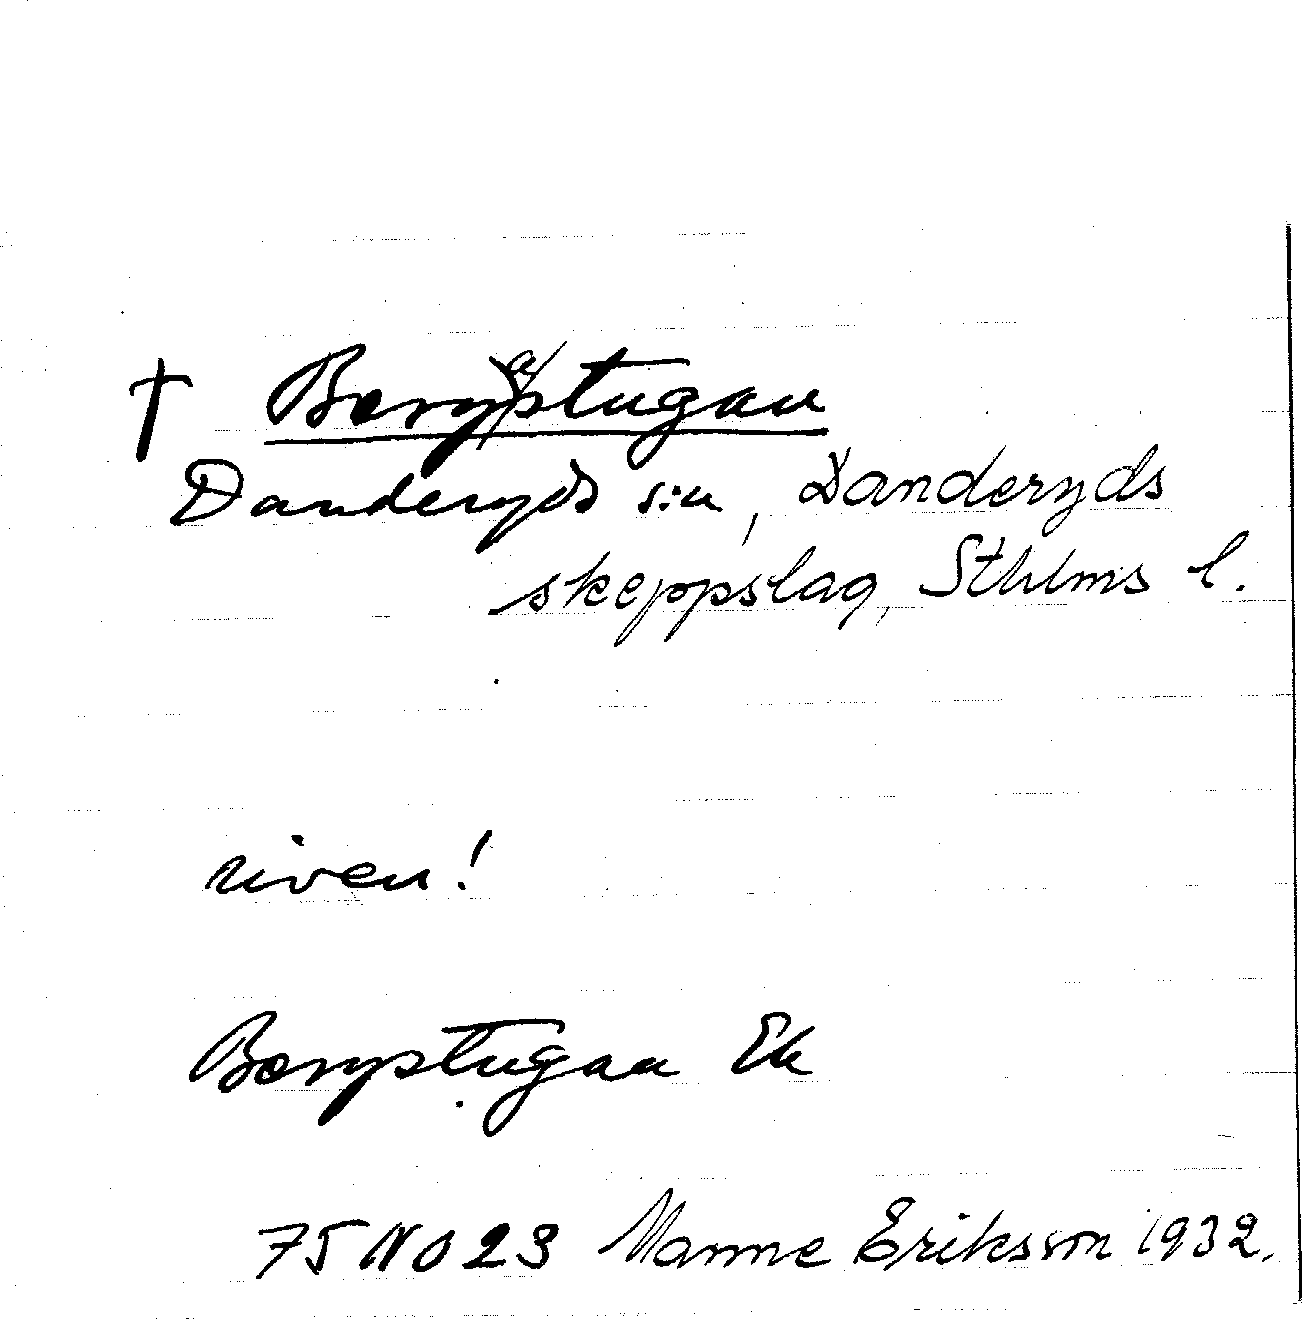 † Bergastugan
Danderyds s:n, Danderyds
skeppslag, Sthlms l.
riven!
Bergstugan Ek
75 NO 23 Manne Eriksson 1932.